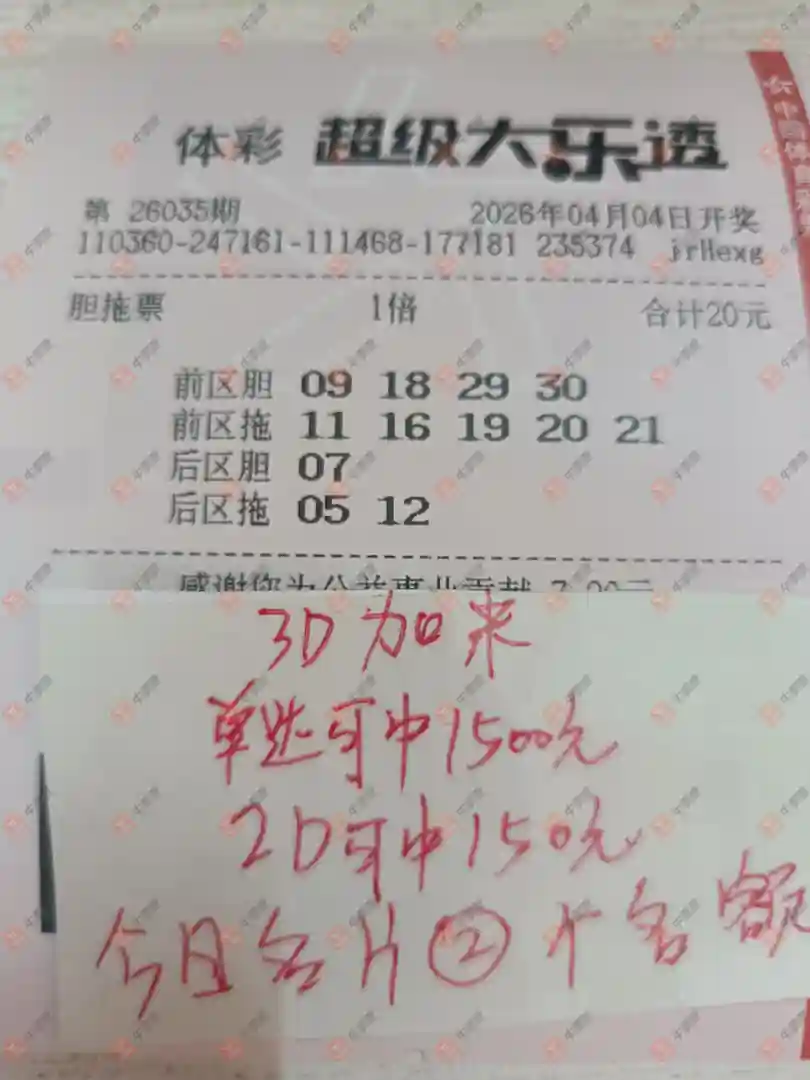 体彩 超级大乐透
第 26035期 2026年04月04日开奖
110360-247161-111468-177181 235374 jrHexg
胆拖票 1倍 合计20元
前区胆 09 18 29 30
前区拖 11 16 19 20 21
后区胆 07
后区拖 05 12
感谢您为公益事业贡献 7.20元
3D加来
单选可中1500元
2D可中150元
今日名片②个名额